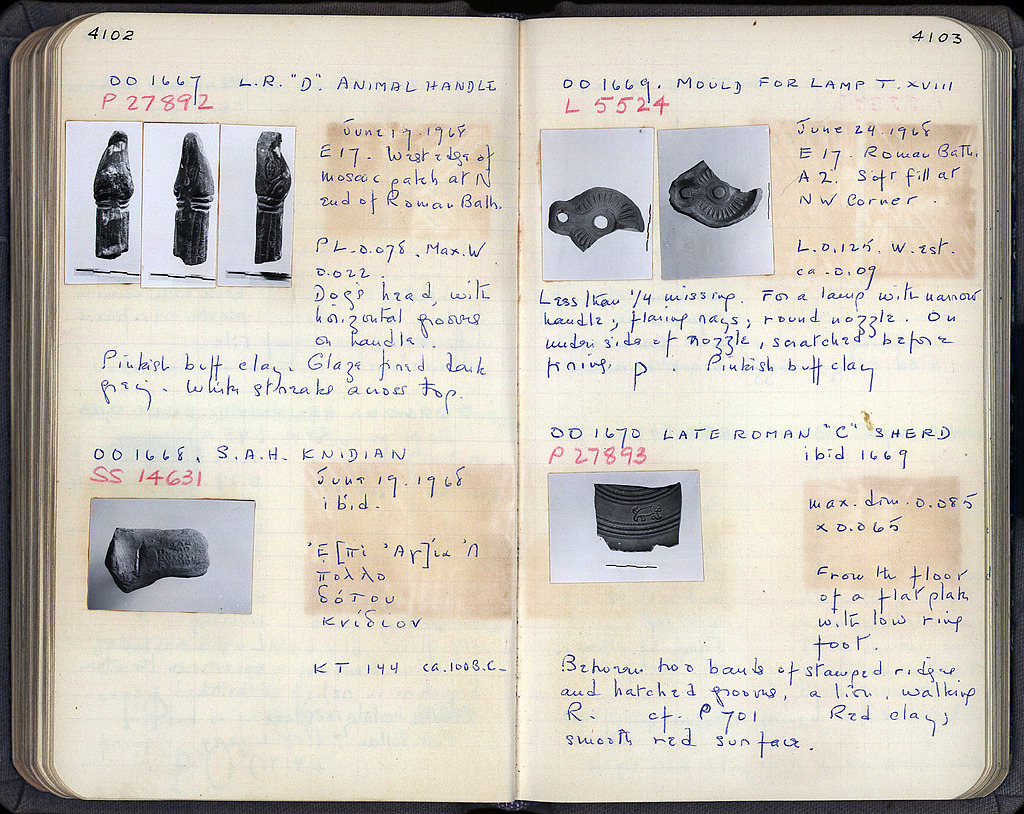 4102
OO 1667 L.R. "D". ANIMAL HANDLE
P 27892
June 17. 1968
E 17. West edge of
mosaic patch at N
end of Roman Bath.
P.L. 0.078. Max. W
0.022.
Dog's head, with
horizontal grooves
on handle.
Pinkish buff clay. Glaze fired dark
grey. White streaks across top.
OO 1668. S.A.H. KNIDIAN
SS 14631
June 19. 1968
ibid.
Ἐ[πὶ Ἁγ]ία Ἀ
πολλο
δότου
κνίδιον
KT 144 ca. 100 B.C.
4103
OO 1669. MOULD FOR LAMP T. XVIII
L 5524
June 24. 1968
E 17. Roman Bath.
A 2. Soft fill at
NW Corner.
L. 0.125. W. est.
ca. 0.09
Less than 1/4 missing. For a lamp with narrow
handle; flaring rays; round nozzle. On
under side of nozzle, scratched before
firing, P. Pinkish buff clay
OO 1670 LATE ROMAN "C" SHERD
P 27893
ibid 1669
max. dim. 0.085
x 0.065
From the floor
of a flat plate
with low ring
foot.
Between two bands of stamped ridges
and hatched grooves, a lion, walking
R. cf. P 701 Red clay;
smooth red surface.